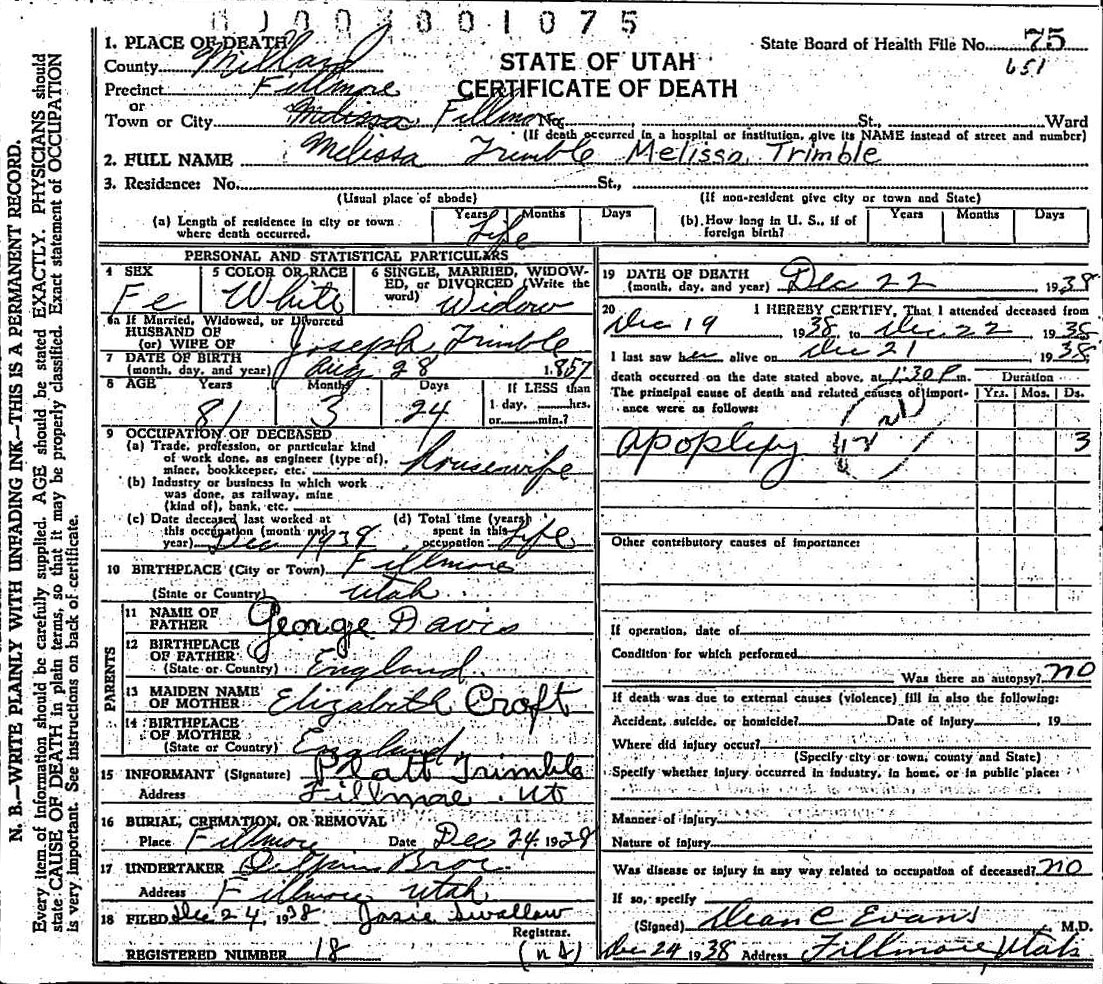 01003801075
1. PLACE OF DEATH
County Millard
Precinct Fillmore
or
Town or City Melissa Fillmore No. St., Ward
(If death occurred in a hospital or institution, give its NAME instead of street and number)
STATE OF UTAH
CERTIFICATE OF DEATH
State Board of Health File No. 75
651
2. FULL NAME Melissa Trimble Melissa Trimble
3. Residence: No. St.,
(Usual place of abode) (If non-resident give city or town and State)
(a) Length of residence in city or town where death occurred. Years Months Days
Life
(b) How long in U. S., if of foreign birth? Years Months Days
PERSONAL AND STATISTICAL PARTICULARS
4 SEX Fe
5 COLOR OR RACE White
6 SINGLE, MARRIED, WIDOWED, or DIVORCED (Write the word) Widow
6a If Married, Widowed, or Divorced
HUSBAND OF
(or) WIFE OF Joseph Trimble
7 DATE OF BIRTH
(month, day, and year) Aug 28 1857
8 AGE Years Months Days If LESS than
81 3 24 1 day, hrs.
or min.?
9 OCCUPATION OF DECEASED
(a) Trade, profession, or particular kind
of work done, as engineer (type of),
miner, bookkeeper, etc. housewife
(b) Industry or business in which work
was done, as railway, mine
(kind of), bank, etc.
(c) Date deceased last worked at
this occupation (month and
year) Dec 1938
(d) Total time (years)
spent in this
occupation Life
10 BIRTHPLACE (City or Town) Fillmore
(State or Country) Utah
PARENTS
11 NAME OF
FATHER George Davis
12 BIRTHPLACE
OF FATHER
(State or Country) England
13 MAIDEN NAME
OF MOTHER Elizabeth Croft
14 BIRTHPLACE
OF MOTHER
(State or Country) England
15 INFORMANT (Signature) Platt Trimble
Address Fillmore Ut
16 BURIAL, CREMATION, OR REMOVAL
Place Fillmore Date Dec 24 1938
17 UNDERTAKER Bros
Address Fillmore Utah
18 FILED Dec 24, 1938 Josie Swallow
Registrar.
REGISTERED NUMBER 18
19 DATE OF DEATH
(month, day, and year) Dec 22 1938
20 I HEREBY CERTIFY, That I attended deceased from
Dec 19 1938 to Dec 22 1938
I last saw her alive on Dec 21 1938
death occurred on the date stated above, at 1:30 P.m.
The principal cause of death and related causes of importance were as follows:
Duration
Yrs. Mos. Ds.
apoplexy 3
Other contributory causes of importance:
If operation, date of
Condition for which performed
Was there an autopsy? no
If death was due to external causes (violence) fill in also the following:
Accident, suicide, or homicide? Date of Injury 19
Where did injury occur?
(Specify city or town, county and State)
Specify whether injury occurred in industry, in home, or in public place:
Manner of injury
Nature of injury
Was disease or injury in any way related to occupation of deceased? no
If so, specify
(Signed) Dean C Evans M.D.
Dec 24 1938 Address Fillmore Utah
N. B.—WRITE PLAINLY WITH UNFADING INK—THIS IS A PERMANENT RECORD.
Every item of information should be carefully supplied. AGE should be stated EXACTLY. PHYSICIANS should
state CAUSE OF DEATH in plain terms, so that it may be properly classified. Exact statement of OCCUPATION
is very important. See instructions on back of certificate.